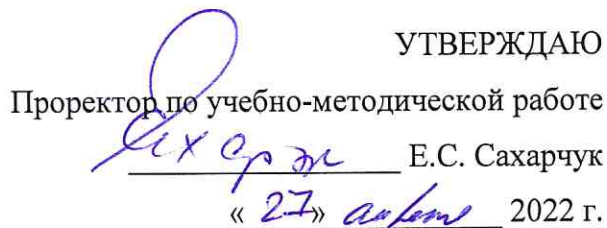 УТВЕРЖДАЮ
Проректор по учебно-методической работе
Е.С. Сахарчук
« 27» апреля 2022 г.